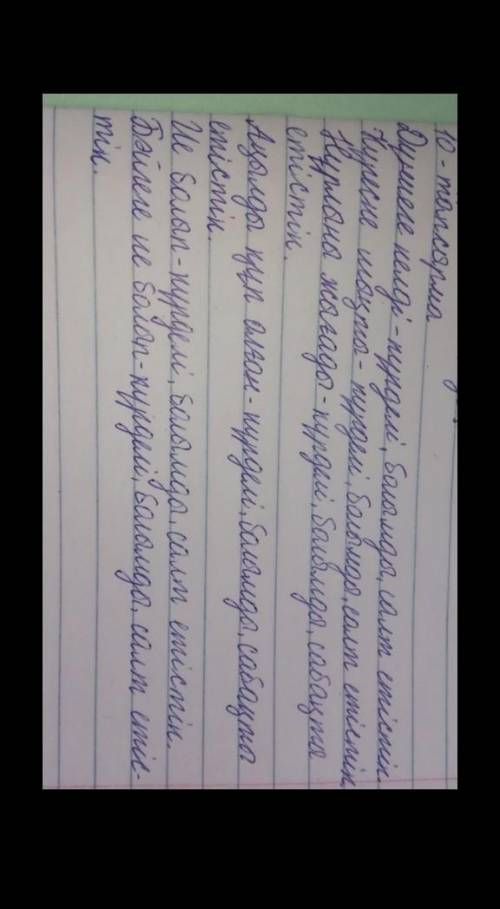 10-тапсырма
Дүниеге келді-күрделі, болымды, салт етістік.
Күресіне шақта-күрделі, болымды, салт етістік
Нұрлана жағады-күрделі, болымды, сабақты
етістік.
Ауылды құп алған-күрделі, болымды, сабақты
етістік.
Ие болып-күрделі, болымды, салт етістік.
Бәйгеге ие болып-күрделі, болымды, салт етіс-
тік.